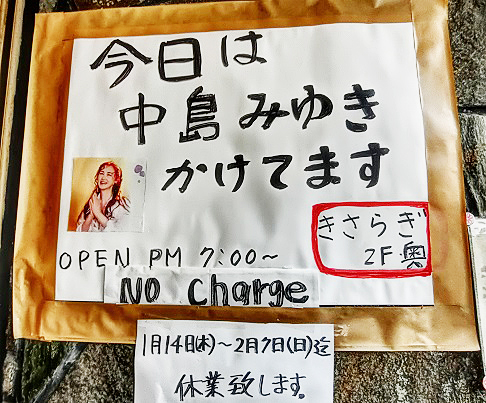 今日は
中島みゆき
かけてます
きさらぎ
2F奥
OPEN PM 7:00~
NO charge
1月14日(木)~2月7日(日)迄
休業致します。